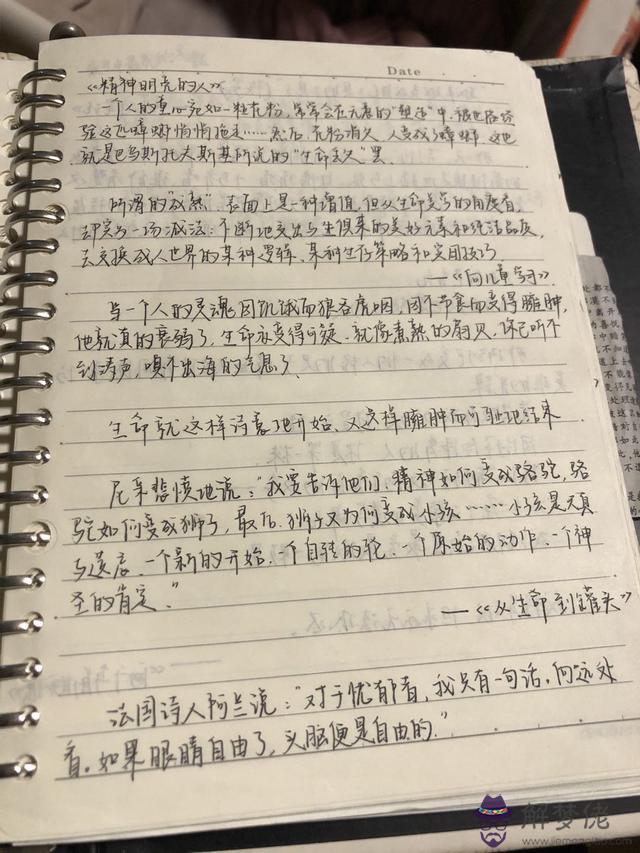 Date
《精神明亮的人》
一个人的童心宛如一粒花粉，常常会在无意的"塑造"中，被世俗经
验这匹蟑螂悄悄拖走……然后，花粉消失，人变成了蟑螂。这也
就是巴乌斯托夫斯基所说的"生命丢失"罢。
所谓的"成熟"，表面上是一种增值，但从生命美学的角度看，
却实为一场减法：不断地交出与生俱来的美好元素和纯洁品质，
去交换成人世界的某种逻辑、某种生存策略和实用技巧。
——《向儿童学习》
当一个人的灵魂因饥饿而狼吞虎咽，因不节食而变得臃肿，
他就真的衰弱了，生命亦变得可疑、就像煮熟的扇贝，你已听不
到涛声，嗅不出海的气息了。
生命就这样诗意地开始、又这样臃肿而可耻地结束
尼采悲愤地说："我要告诉他们，精神如何变成骆驼，骆
驼如何变成狮子，最后，狮子又为何变成小孩……小孩是天真
与遗忘、一个新的开始、一个自转的轮、一个原始的动作、一个神
圣的肯定。"
——《从生命到罐头》
法国诗人阿兰说："对于忧郁者，我只有一句话，向远处
看。如果眼睛自由了，头脑便是自由的。"
解梦佬